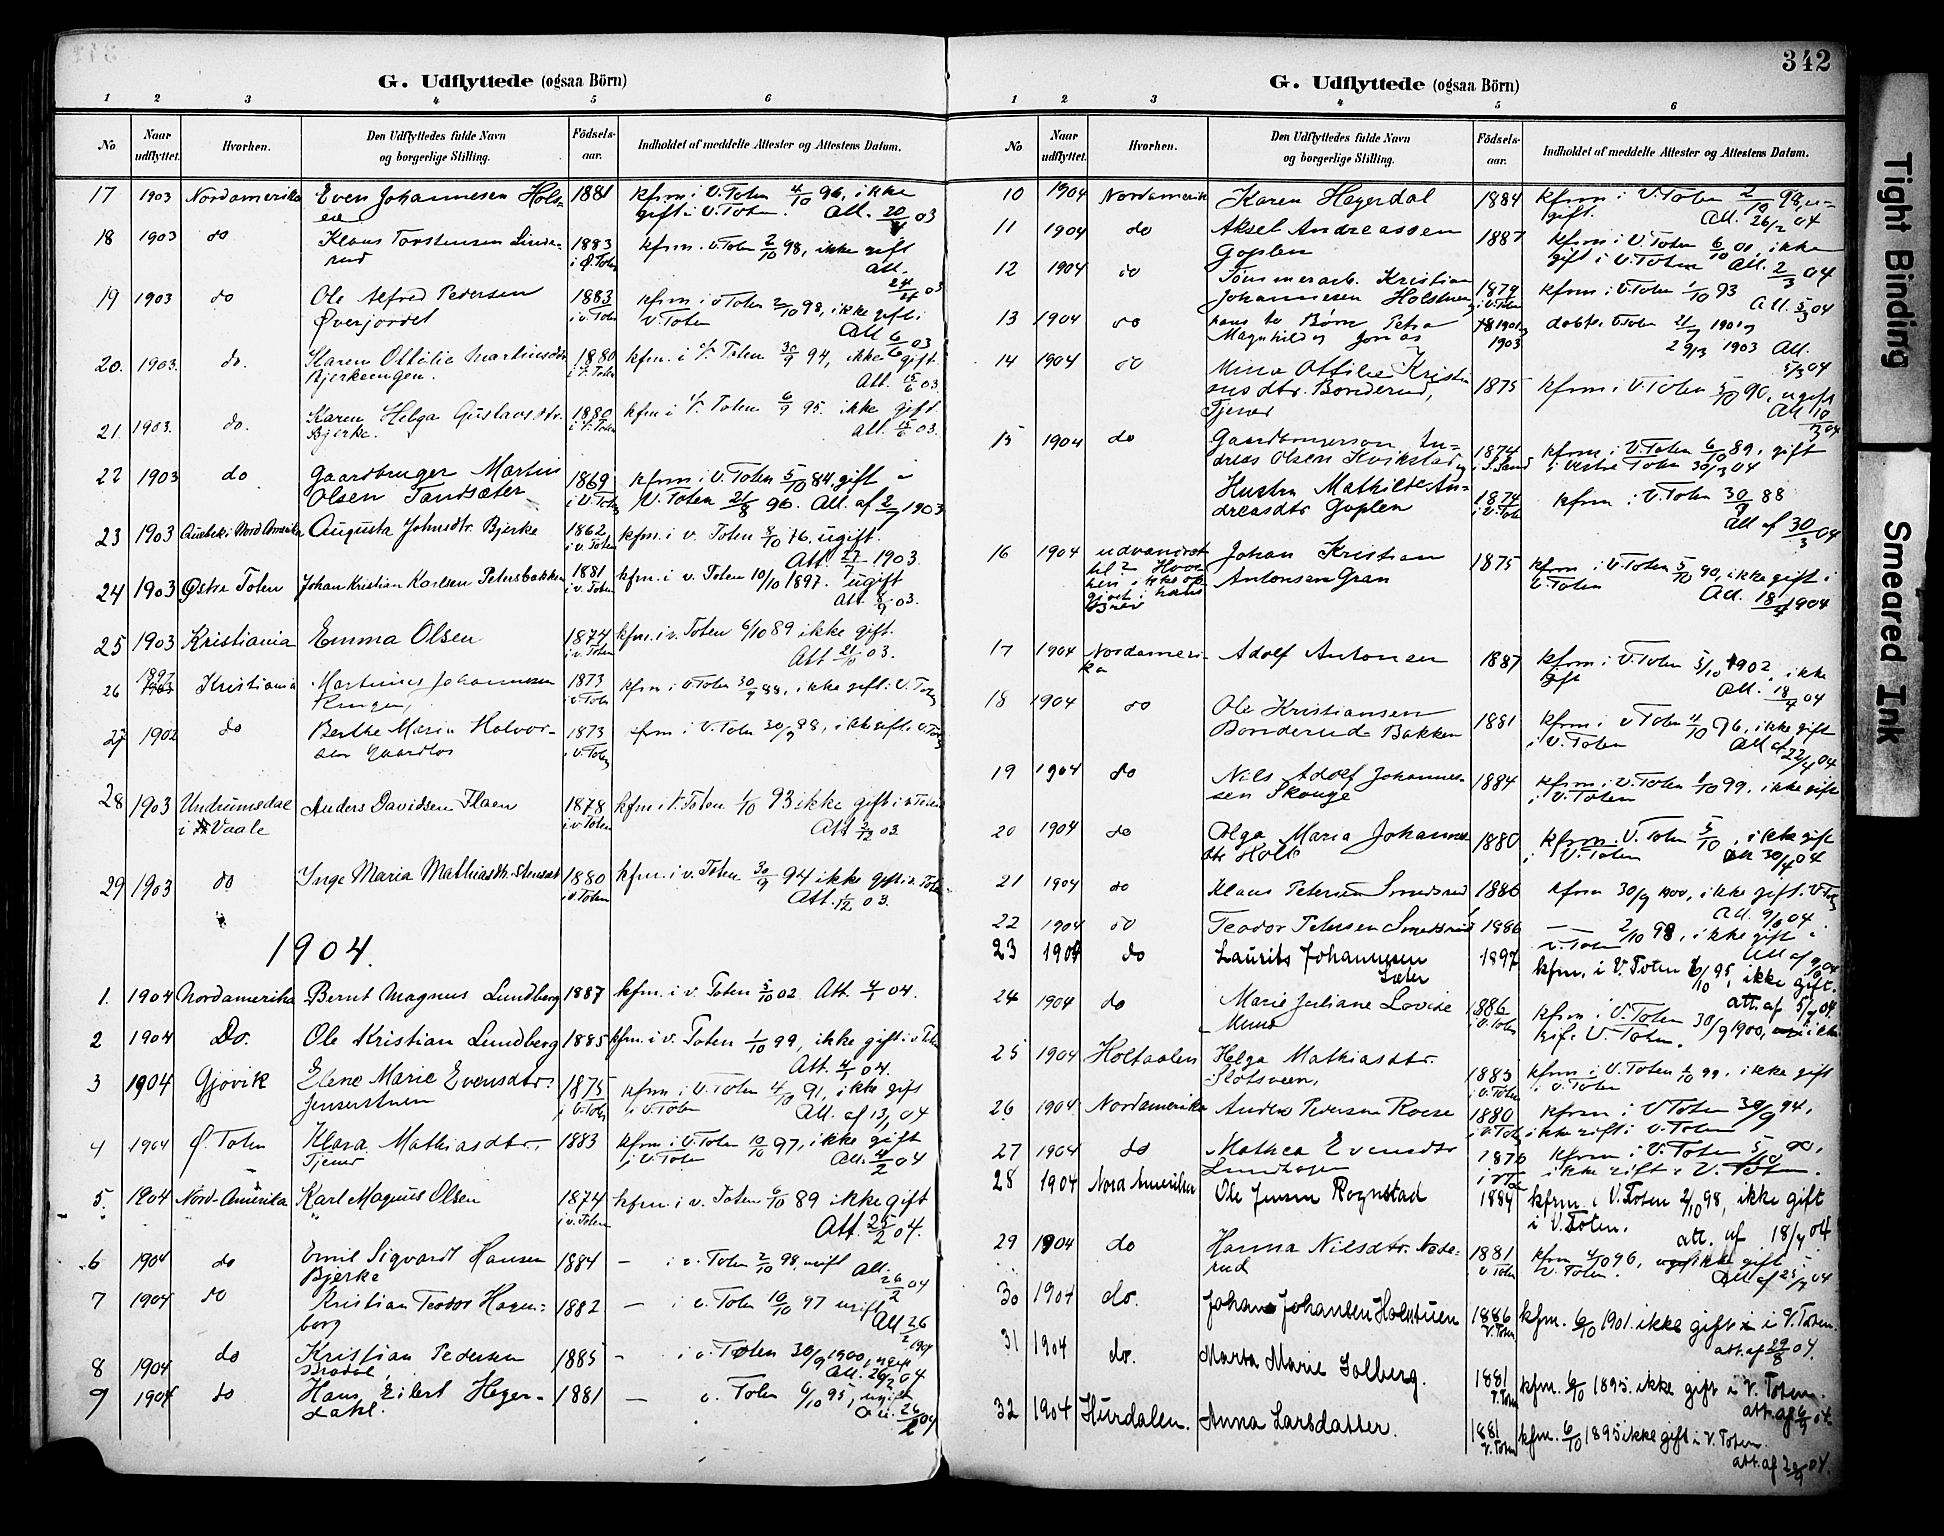 G. Udflyttede (ogsaa Börn)
1 2 3 4 5 6
No Naar udflyttet. Hvorhen. Den Udflyttedes fulde Navn og borgerlige Stilling. Födsels-aar. Indholdet af meddelte Attester og Attestens Datum.
17 1903 Nordamerika Even Johannesen Hols- 1881 kfrm i V. Toten 4/10 96, ikke
gift i V. Toten. Att. 20/4 03
18 1903 do Klaus Torstensen Linde- 1883 kfrm. i V. Toten 2/10 98, ikke gift
rud i Ø. Toten Att.
19 1903 do Ole Alfred Pedersen 1883 kfrm i V Toten 2/10 98, ikke gift i
Øverjordet i V. Toten V. Toten Att 6/6 03
20. 1903. do. Karen Ottilie Martinsdtr 1880 kfm. i V. Toten 30/9 94, ikke gift.
Bjerkeengen. i V. Toten Att. 15/6 03.
21. 1903. do. Karen Helga Gustavsdtr. 1880 kfm i V. Toten 6/9 95. ikke gift.
Bjerke. i V. Toten att. 15/6 03.
22 1903 do Gaardbruger Martin 1869 kfrm i V. Toten 5/10 84, gift i
Olsen Tandsæter i V. Toten V. Toten 21/8 96. Att. af 2/7 1903
23 1903 Quebek i Nord Amerika Augusta Johnsdtr. Bjerke 1862 kfm. i v. Toten 8/10 76. ugift.
i v. Toten Att. 27/7 1903.
24 1903 Østre Toten Johan Kristian Karlsen Petersbakken 1881 kfm. i v. Toten 10/10 1897. ugift
i v. Toten Att. 8/9 03.
25 1903 Kristiania Emma Olsen 1874 kfm. i v. Toten 6/10 89 ikke gift.
i v. Toten Att 21/10 03.
26 Kristiania Martinus Johannesen 1873 kfm i V Toten 30/9 88, ikke gift i V. Toten
Ringen, i V. Toten
27 1902 do Berthe Marie Halvor- 1873 kfrm i V. Toten 30/9 88, ikke gift i V. Toten
sen Gaardlos i V. Toten
28 1903 Undrumsdal Anders Davidsen Flaen 1878 kfm. i V. Toten 1/10 93 ikke gift i v. Toten
i Vaale i v. Toten Att 2/12 03.
29 1903 do Inge Maria Mathiasdtr. 1880 kfm. i v. Toten 30/9 94 ikke gift i v. Toten
i v. Toten Att. 1/12 03.
1904.
1. 1904 Nordamerika Bernt Magnus Lundberg 1887 kfm. i v. Toten 5/10 02 Att. 4/1 04.
2 1904 Do. Ole Kristian Lundberg 1885 kfm. i v. Toten 1/10 99, ikke gift i v. Toten
Att. 4/1 04.
3 1904 Gjøvik Elene Marie Evensdtr. 1875 kfrm. i V. Toten 4/10 91, ikke gift
i V. Toten i V. Toten Att. af 13/1 04
4 1904 Ø. Toten Klara Mathiasdtr. 1883 kfrm i V. Toten 10/10 97, ikke gift
Tjener i V. Toten Att. 4/2 04
5. 1904 Nord-Amerika Karl Magnus Olsen 1874 kfm. i v. Toten 6/10 89 ikke gift
i v. Toten Att. 25/2 04.
6 1904 do Emil Sigvardt Hansen 1884 — i v. Toten 2/10 98, ugift Att.
Bjerke 26/2 04
7 1904 do Kristian Teodor Hagen- 1882 — i v. Toten 10/10 97 ugift
borg Att 26/2 1904
8 1904 do Kristian Pedersen 1885 — i v. Toten 30/9 1900, ugift
Att. 26/2 04
9 1904 do Hans Eilert Heger- 1881 — v. Toten 6/10 95, ugift
dahl. Att. 26/2 04
342
G. Udflyttede (ogsaa Börn)
1 2 3 4 5 6
No Naar udflyttet. Hvorhen. Den Udflyttedes fulde Navn og borgerlige Stilling. Födsels-aar. Indholdet af meddelte Attester og Attestens Datum.
10 1904 Nordamerik Karen Hegerdal 1884 kfrm i V. Toten 2/10 98, u-
gift. Att. 26/2 04
11 1904 do Aksel Andreassen 1887 kfrm i V. Toten 6/10 00, ikke
Goplen gift i V. Toten Att. 2/3 04
12 1904 do Tømmerarb. Kristian 1879 kfrm i V. Toten 1/10 93
Johannesen i V. Toten Att. 5/3 04
13 1904 do hans to Børn Petra 1901 døbt i V. Toten 21/7 1901 og
Magnhild og Jonas 1903 29/3 1903 Att.
5/3 04
14 1904 do Mina Ottilie Kristi- 1875 kfrm i V. Toten 5/10 90, ugift
ansdtr. Bonderud, Att 10/3 04
Tjener
15 1904 do An- 1874 kfrm i V. Toten 6/10 89, gift
dreas Olsen Kvikstad og i S. Land i Vestre Toten 30/3 04
Hustru Mathilde An- 1874 kfrm i V. Toten 30/9 88
dreasdtr Goplen i V. Toten Att af 30/3 04
16 1904 udvandret Johan Kristian 1875 kfrm i V. Toten 5/10 90, ikke gift i
til ? Hvor- Antonsen Gran V. Toten Att. 18/4 1904
hen ikke op-
givet i hans
Brev
17 1904 Nordameri- Adolf Antonsen 1887 kfrm i V. Toten 5/10 1902, ikke
ka gift Att. 18/4 04
18 1904 do Ole Kristiansen 1881 kfrm i V Toten 4/10 96, ikke gift
Bonderud Bakken i V. Toten Att af 22/4 04
19 1904 do Nils Adolf Johannes- 1884 kfrm i V. Toten 1/10 99, ikke gift
sen Skonge i V. Toten
20 1904 do Olga Maria Johannes- 1880 kfrm. V. Toten 5/10, ikke gift
dtr Holt i V. Toten Att 30/4 04
21 1904 do Klaus Petersen Smedsrud 1886 kfrm 30/9 1900, ikke gift. V. Toten
Att. 9/8 04
22 1904 do Teodor Petersen Smedsrud 1886 — 2/10 98, ikke gift i
V. Toten Att af 9/8 04
23 1904 do Laurits Johannesen 1897 kfm. i V. Toten 6/10 95, ikke gift.
Sæter att. af 5/9 04.
24 1904 do Marie Juliane Lovise 1886 kfrm. i V. Toten 30/9 1900, ikke
i V. Toten gift i V. Toten.
25 1904 Holtaalen Helga Mathiasdtr. 1883 kfrm i V. Toten 1/10 99, ikke gift
Slotsveen, i V. Toten i V. Toten
26 1904 Nordamerika Anders Pedersen Roese 1880 kfrm i V Toten 30/9 94,
i V. Toten ikke gift i V. Toten
27 1904 do Mathea Evensdtr 1876 kfrm i V. Toten 5/10 90,
Lundhagen ikke gift i V. Toten.
28 1904 Nord Amerika Ole Jensen Rognstad 1884 kfrm. i V. Toten 2/10 98, ikke gift
i V. Toten. att. af 18/7 04
29 1904 do Hanna Nilsdtr. Nøde- 1881 kfm 4/10 96, ikke gift i
rud i V. Toten V. Toten. Att af 25/7 04
30 1904 do. Johan Johansen Holstuen 1886 kfm. 6/10 1901. ikke gift i V. Toten.
V. Toten att. af 29/8 04.
31 1904 do. Marta Marie Solberg. 1881 kfm. 6/10 1895. ikke gift i V. Toten.
V. Toten att. af 6/9 04.
32 1904 Hurdalen. Anna Larsdatter. 1881 kfm. 6/10 1895 ikke gift i V. Toten.
V. Toten att. af 20/9 04.
Tight Binding
Smeared Ink